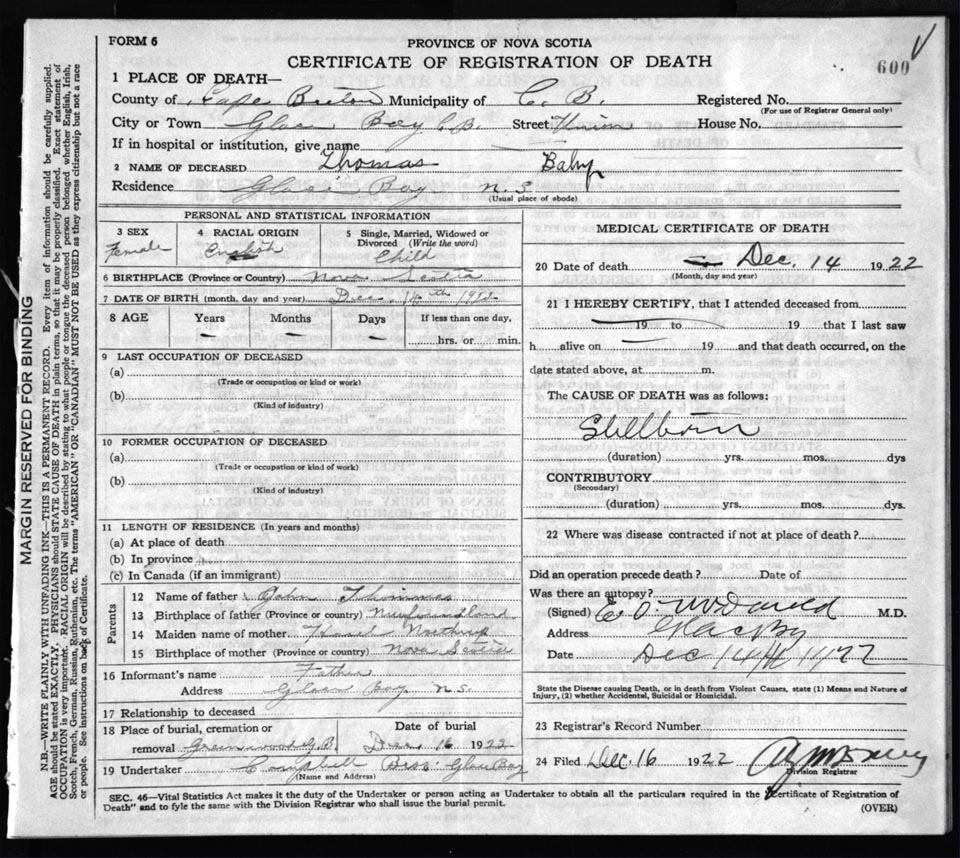 FORM 6
PROVINCE OF NOVA SCOTIA
CERTIFICATE OF REGISTRATION OF DEATH
600
1 PLACE OF DEATH—
County of Cape Breton Municipality of C. B. Registered No.
(For use of Registrar General only)
City or Town Glace Bay C.B. Street Union House No.
If in hospital or institution, give name
2 NAME OF DECEASED Thomas Baby
Residence Glace Bay N. S.
(Usual place of abode)
PERSONAL AND STATISTICAL INFORMATION
3 SEX 4 RACIAL ORIGIN 5 Single, Married, Widowed or Divorced (Write the word)
Female English Child
6 BIRTHPLACE (Province or Country) Nova Scotia
7 DATE OF BIRTH (month, day and year) Dec. 14th 1922
8 AGE Years Months Days If less than one day,
hrs. or min.
9 LAST OCCUPATION OF DECEASED
(a)
(Trade or occupation or kind or work)
(b)
(Kind of industry)
10 FORMER OCCUPATION OF DECEASED
(a)
(Trade or occupation or kind of work)
(b)
(Kind of industry)
11 LENGTH OF RESIDENCE (In years and months)
(a) At place of death
(b) In province
(c) In Canada (if an immigrant)
Parents
12 Name of father John Thomas
13 Birthplace of father (Province or country) Newfoundland
14 Maiden name of mother
15 Birthplace of mother (Province or country) Nova Scotia
16 Informant's name Father
Address Glace Bay N.S.
17 Relationship to deceased
18 Place of burial, cremation or Date of burial
removal Greenwood G.B. Dec. 16 1922
19 Undertaker Campbell Bros. Glace Bay
(Name and Address)
MEDICAL CERTIFICATE OF DEATH
20 Date of death Dec. 14 1922
(Month, day and year)
21 I HEREBY CERTIFY, that I attended deceased from
19 to 19 that I last saw
h alive on 19 and that death occurred, on the
date stated above, at m.
The CAUSE OF DEATH was as follows:
Stillborn
(duration) yrs. mos. dys
CONTRIBUTORY
(Secondary)
(duration) yrs. mos. dys.
22 Where was disease contracted if not at place of death?
Did an operation precede death? Date of
Was there an autopsy?
(Signed) M.D.
Address Glace Bay
Date Dec 14th 1922
State the Disease causing Death, or in death from Violent Causes, state (1) Means and Nature of
Injury, (2) whether Accidental, Suicidal or Homicidal.
23 Registrar's Record Number
24 Filed Dec 16 1922
Division Registrar
SEC. 46—Vital Statistics Act makes it the duty of the Undertaker or person acting as Undertaker to obtain all the particulars required in the Certificate of Registration of
Death" and to fyle the same with the Division Registrar who shall issue the burial permit.
(OVER)
MARGIN RESERVED FOR BINDING
N.B.—WRITE PLAINLY WITH UNFADING INK—THIS IS A PERMANENT RECORD. Every item of information should be carefully supplied.
AGE should be stated EXACTLY. PHYSICIANS should STATE CAUSE OF DEATH in plain terms, so that it may be properly classified. Exact statement of
OCCUPATION is very important. RACIAL ORIGIN will be described by stating to what people or tongue the deceased person belonged whether English, Irish,
Scotch, French, German, Russian, Ruthenian, etc. The terms "AMERICAN" OR "CANADIAN" MUST NOT BE USED as they express citizenship but not a race
or people. See instructions on back of Certificate.